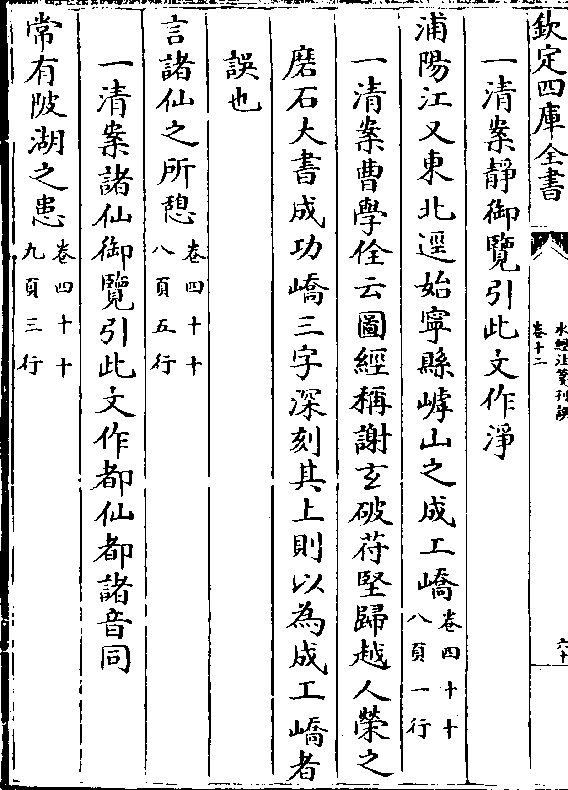 欽定四庫全書
水經注箋刊誤
卷十二
六十
一清案靜御覽引此文作淨
浦陽江又東北逕始寧縣嶀山之成工嶠卷四十十八頁一行
一清案曹學佺云圖經稱謝玄破苻堅歸越人榮之
磨石大書成功嶠三字深刻其上則以為成工嶠者
誤也
言諸仙之所憩卷四十十八頁五行
一清案諸仙御覽引此文作都仙都諸音同
常有陂湖之患卷四十十九頁三行